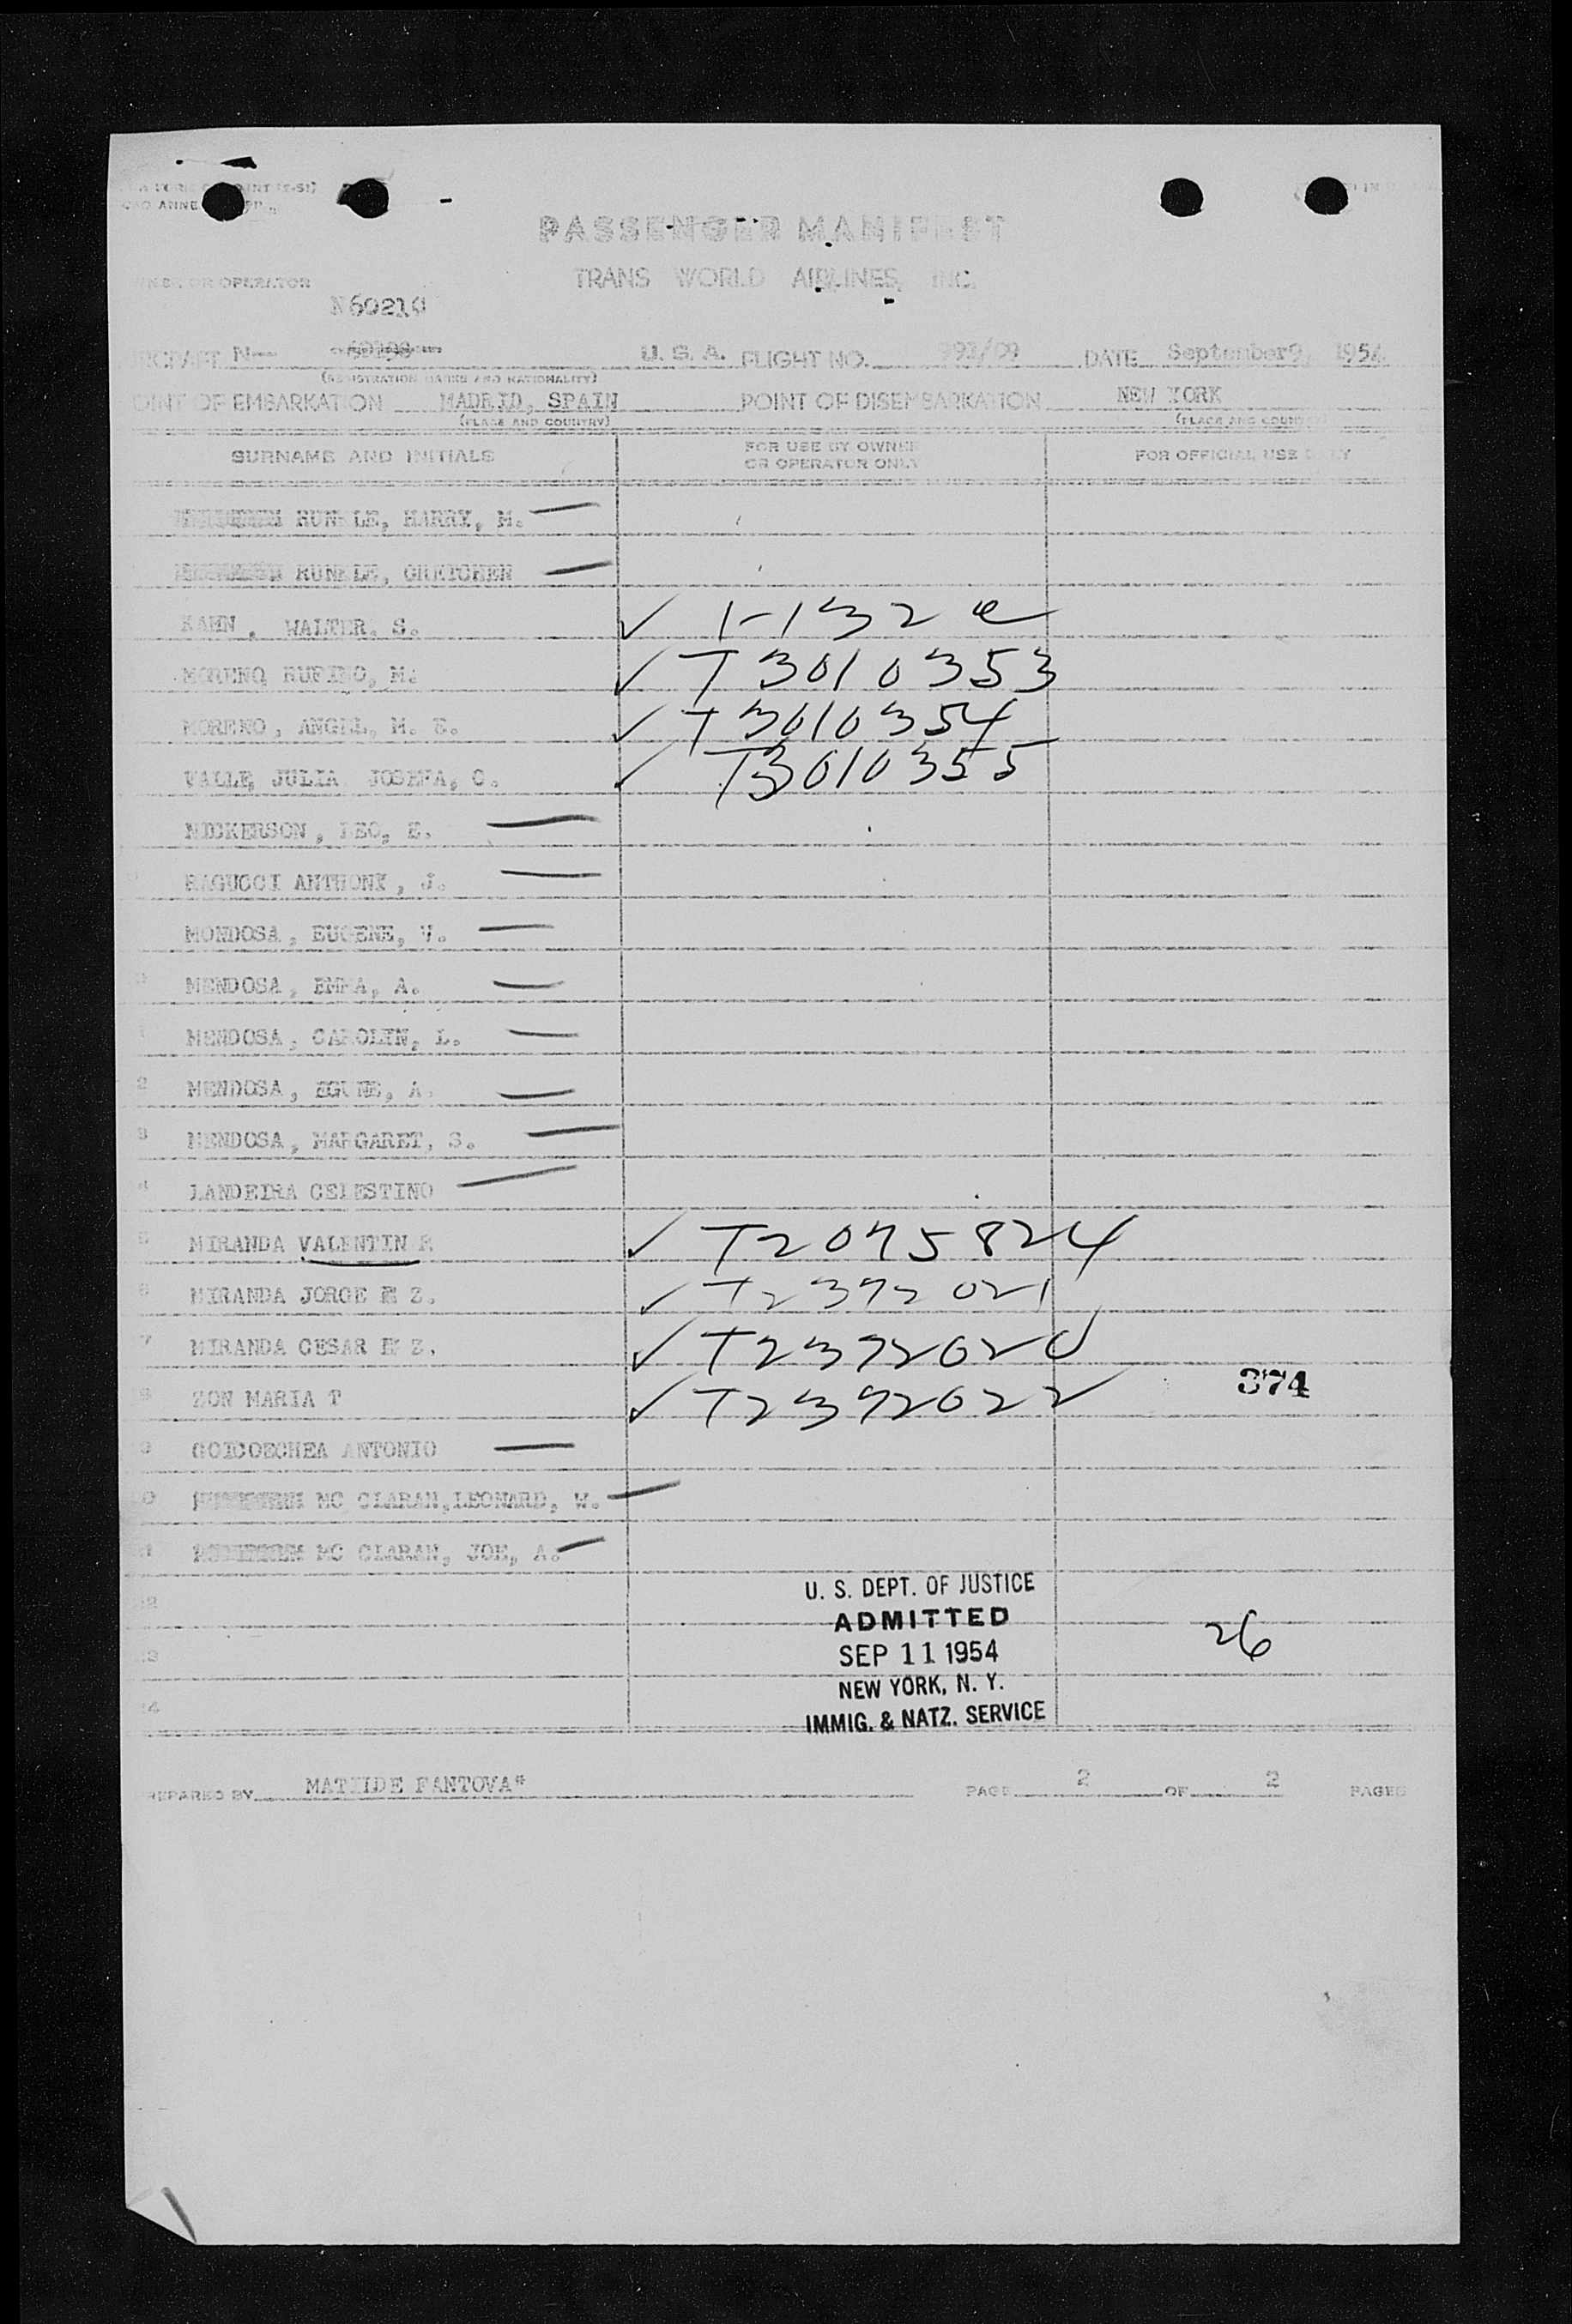 PASSENGER MANIFEST
OPERATOR
TRANS WORLD AIRLINES, INC.
N60210
N--
U. S. A. FLIGHT NO. 991/09 DATE September 9, 1954
(REGISTRATION MARKS AND NATIONALITY)
POINT OF EMBARKATION MADRID, SPAIN POINT OF DISEMBARKATION NEW YORK
(PLACE AND COUNTRY)
SURNAME AND INITIALS
FOR USE BY OWNER
OR OPERATOR ONLY
FOR OFFICIAL USE ONLY
RUNKLE, HARRY, M.
RUNKLE, GRETCHEN
KAHN, WALTER. S. ✓ 1-132 e
MORENO RUFINO, M. ✓ T3010353
MORENO, ANGEL, M. E. ✓ T3010354
VALLE, JULIA JOSEFA, C. ✓ T3010355
NICKERSON, LEO, E.
RAGUCCI ANTHONY, J.
MONDOSA, EUGENE, V.
MENDOSA, EMMA, A.
MENDOSA, CAROLYN, L.
2 MENDOSA, EGUNE, A.
3 MENDOSA, MARGARET, S.
4 LANDEIRA CELESTINO
5 MIRANDA VALENTIN R ✓ T2075824
6 MIRANDA JORGE E Z. ✓ T2372021
7 MIRANDA CESAR E Z. ✓ T2372020
8 ZON MARIA T ✓ T2372022
374
9 GOICOECHEA ANTONIO
0 MC CLARAN, LEONARD, W.
MC CLARAN, JOE, A.
U. S. DEPT. OF JUSTICE
ADMITTED
SEP 11 1954
NEW YORK, N. Y.
IMMIG. & NATZ. SERVICE
26
PREPARED BY MATILDE FANTOVA* PAGE 2 OF 2 PAGES